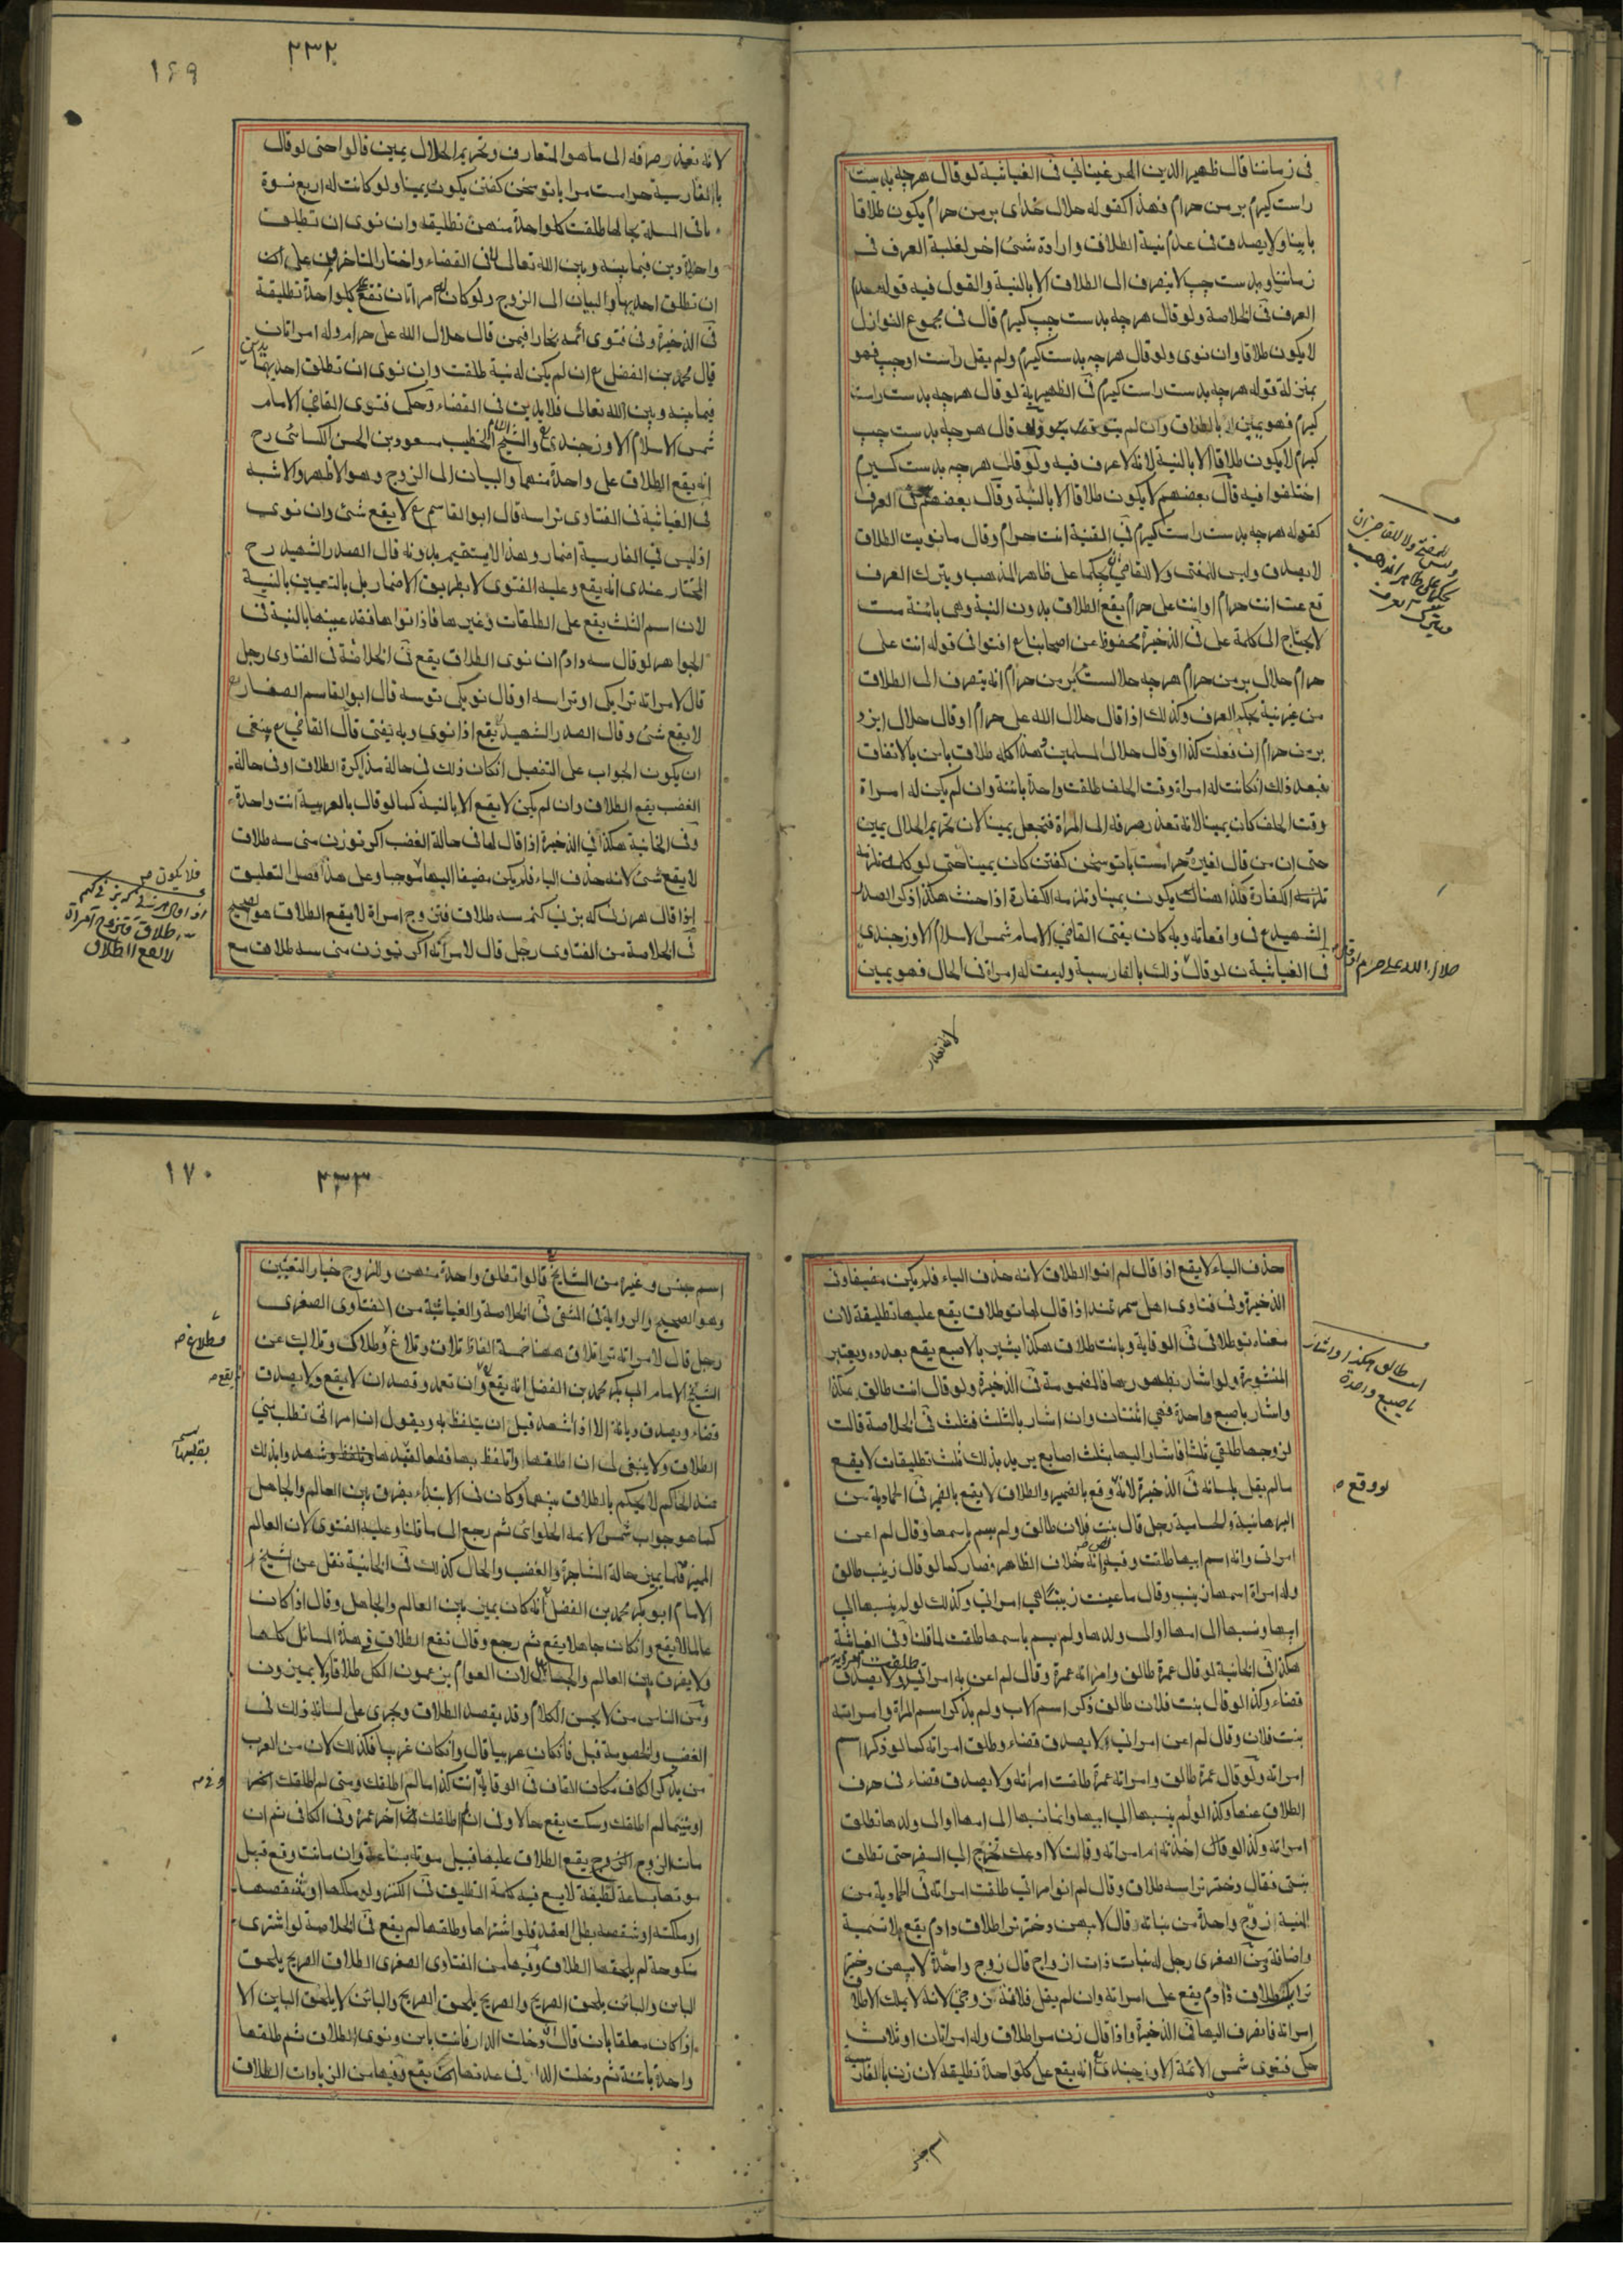 في زماننا قال ظهير الدين المرغيناني في الغياثية لو قال هرچه بدست
راست كيرم بر من حرام فهذا كقوله حلال خداى بر من حرام يكون طلاقا
باينا ولا يصدق في عدم نية الطلاق وارادة شئ اخر لغلبة العرف في
زماننا وبدست چپ لا ينصرف الى الطلاق الا بالنية والقول فيه قوله لعدم
العرف في الخلاصة ولو قال هرچه بدست چپ كيرم قال في مجموع النوازل
لا يكون طلاقا وان نوى ولو قال هرچه بدست كيرم ولم يقل راست او چپ فهو
بمنزلة قوله هرچه بدست راست كيرم في الظهيرية لو قال هرچه بدست راست
كيرم فهو يمين بالطلاق وان لم ينو قال هرچه بدست چپ
كيرم لا يكون طلاقا الا بالنية لانه لا عرف فيه ولو قال هرچه بدست كيرم
اختلفوا فيه قال بعضهم لا يكون طلاقا الا بالنية وقال بعضهم في العرف
كقوله هرچه بدست راست كيرم في القنية انت حرام وقال ما نويت الطلاق
لا يصدق وليس للمفتى ولا للقاضي ان يحكما على ظاهر المذهب ويترك العرف
قع عت انت حرام او انت على حرام يقع الطلاق بدون النية وهى بائنة ست
لا يحتاج الى كلمة على في الذخيرة محفوظ عن اصحابنا ع افتوا في قوله انت على
حرام حلال بر من حرام هرچه حلالست بر من حرام انه ينصرف الى الطلاق
من غير نية بحكم العرف وكذلك اذا قال حلال الله على حرام او قال حلال ايزد
بر من حرام ان فعلت كذا او قال حلال المسلمين هذا كله طلاق باين بالاتفاق
فبعد ذلك ان كانت له امراة وقت الحلف طلقت واحدة بائنة وان لم يكن له امراة
وقت الحلف كان يمينا لانه تعذر صرفه الى المراة فتجعل يمينا لان تحريم الحلال يمين
حتى ان من قال لغيره حرامست با تو سخن كفتن كان يمينا حتى لو كلمه
تلزمه الكفارة فكذا هناك يكون يمينا وتلزمه الكفارة اذا حنث هكذا ذكر الصدر
الشهيد ع في واقعاته وبه كان يفتى القاضي الامام شمس الاسلام الاوزجندي
في الغياثية لو قال ذلك بالفارسية وليست له امراة في الحال فهو يمين
وليس للمفتي ولا للقاضي ان
يحكما على ظاهر المذهب
ويترك العرف
حلال الله على حرام
لانه تعذر
١٦٩
٢٣٢
لانه تعذر صرفه الى ما هو المتعارف وتحريم الحلال يمين قالوا حتى لو قال
بالفارسية حرامست مرا با تو سخن كفتن يكون يمينا ولو كانت له اربع نسوة
باقي المسلة بحالها طلقت كل واحدة منهن تطليقة وان نوى ان تطلق
واحدة دين فيما بينه وبين الله تعالى لا في القضاء واختار المتاخرين على ان
ان تطلق احديها والبيان الى الزوج ولو كان له امراتان تقع كل واحدة تطليقة
في الذخيرة وفي فتوى ائمه بخارا فيمن قال حلال الله على حرام وله امراتان
قال محمد بن الفضل ع ان لم يكن له نية طلقت وان نوى ان تطلق احديهما يدين
فيما بينه وبين الله تعالى فلا يدين في القضاء وحكى فتوى القاضي الامام
شمس الاسلام الاوزجندي والشيخ الخطيب مسعود بن الحسن الكساني رح
انه يقع الطلاق على واحدة منهما والبيان الى الزوج وهو الاظهر والاشبه
في الغياثية في الفتاوى تراسه قال ابو القاسم ع لا يقع شئ وان نوى
اذ ليس في الفارسية اضمار وهذا لا يستقيم بدونه قال الصدر الشهيد رح
المختار عندى انه يقع وعليه الفتوى لا بطريق الاضمار بل بالتعيين بالنية
لان اسم الثلث يقع على الطلقات وغيرها فاذا نواها فقد عينها بالنية في
الجواهر لو قال سه دادم ان نوى الطلاق يقع في الخلاصة في الفتاوى رجل
قال لامراته ترا يكى او تراسه او قال تو يكى تو سه قال ابو القاسم الصفار
لا يقع شئ وقال الصدر الشهيد يقع اذا نوى وبه يفتى قال القاضي ع ينبغى
ان يكون الجواب على التفصيل ان كان ذلك في حالة مذاكرة الطلاق او في حالة
الغضب يقع الطلاق وان لم يكن لا يقع الا بالنية كما لو قال بالعربية انت واحدة
وفي الخانية هكذا في الذخيرة اذا قال لها في حالة الغضب اكر تو زن منى سه طلاق
لا يقع شئ لانه حذف الياء فلم يكن مضيفا اليها موجبا وعلى هذا فصل التعليق
اذا قال هر زنى كه بزنى كنم سه طلاق فتزوج امراة لا يقع الطلاق هو الصحيح
في الخلاصة من الفتاوى رجل قال لامراته اكر تو زن منى سه طلاق مع
فلا يكون
لا يقع الطلاق
حذف الياء لا يقع اذا قال لم انو الطلاق لانه حذف الياء فلم يكن مضيفا وفى
الذخيرة وفى فتاوى اهل سمرقند اذا قال لها تو طلاق يقع عليها تطليقة لان
معناه تو طلاقى في الوقاية وبانت طلاق هكذا يشير بالاصبع يقع بعدده ويعتبر
المنشورة ولو اشار بظهورها فالمضمومة في الذخيرة ولو قال انت طالق هكذا
واشار باصبع واحدة فهي اثنتان وان اشار بالثلث فثلث في الخلاصة قالت
لزوجها طلقني ثلثا فاشار اليها بثلث اصابع يريد بذلك ثلث تطليقات لا يقع
ما لم يقل بلسانه في الذخيرة لانه وقع بالضمير والطلاق لا يقع بالضمير في الحمادية من
البرهانية والحسامية رجل قال بنت فلان طالق ولم يسم باسمها وقال لم اعن
امراتى وانه اسم ابيها طلقت وفيه انه خلاف الظاهر فصار كما لو قال زينب طالق
وله امراة اسمها زينب وقال ما عينت زينبا هى امراتى وكذلك لو لم ينسبها الى
ابيها ونسبها الى امها او الى ولدها ولم يسم باسمها طلقت لما قلنا وفي الغياثية
هكذا في الخانية لو قال عمرة طالق وامراته عمرة وقال لم اعن به امراتى ولا يصدق
قضاء وكذا لو قال بنت فلان طالق ذكر اسم الاب ولم يذكر اسم المراة وامراته
بنت فلان وقال لم اعن امراتى لا يصدق قضاء وطلق امراته كما لو ذكر اسم
امراته ولو قال عمرة طالق وامراته عمرة طلقت امراته ولا يصدق قضاء في صرف
الطلاق عنها وكذا لو لم ينسبها الى ابيها وانما نسبها الى امها او الى ولدها تطلق
امراته وكذا لو قال اخذته ام امراته وقالت لا ادعك تخرج الى السفر حتى تطلق
بنتى فقال دختر ترا سه طلاق وقال لم انو امراتى طلقت امراته في الحمادية من
المنية زوج واحدة من بناته وقال لابيهن دختر ترا طلاق دادم يقع بلا تسمية
واضافة من الصغرى رجل له بنات ذات ازواج قال زوج واحدة لابيهن دختر
ترا يك طلاق دادم يقع على امراته وان لم يقل فلانة زوجتي لانه لا يملك الا طلاق
امراته فانصرف اليها في الذخيرة واذا قال زن مرا طلاق وله امراتان او ثلاث
حكى فتوى شمس الائمة الاوزجندى انه يقع على كل واحدة تطليقة لان زن بالفارسية
انت طالق هكذا واشار
باصبع واحدة
لو وقع
اسم جنس
١٧٠
٢٣٣
اسم جنس وغيره من المشايخ قالوا تطلق واحدة منهن وللزوج خيار التعيين
وهو الصحيح والرواية في المنتقى في الخلاصة والغياثية من الفتاوى الصغرى
رجل قال لامراته ترا تلاق ههنا خمسة الفاظ تلاق وتلاغ وطلاك وتلاك عن
الشيخ الامام ابى بكر محمد بن الفضل انه يقع وان تعمد وقصد ان لا يقع ولا يصدق
قضاء ويصدق ديانة الا اذا اشهد قبل ان يتلفظ به ويقول ان امراتى تطلب منى
الطلاق ولا ينبغى لى ان اطلقها
عند الحاكم لا يحكم بالطلاق بينهما وكان في الابتداء يفرق بين العالم والجاهل
كما هو جواب شمس الائمة الحلوانى ثم رجع الى ما قلنا وعليه الفتوى لان العالم
المميز قلما يميز حالة المشاجرة والغضب والحال كذلك في الخانية نقل عن الشيخ
الامام ابو بكر محمد بن الفضل انه كان يميز بين العالم والجاهل وقال اذا كان
عالما لا يقع وان كان جاهلا يقع ثم رجع وقال تقع الطلاق في هذه المسائل كلها
ولا يفرق بين العالم والجاهل لان العوام يزعمون الكل طلاقا ولا يميزون
ومن الناس من لا يحسن الكلام وقد يقصد الطلاق ويجرى على لسانه ذلك في
الغضب والخصومة قيل فان كان عربيا قال وان كان عربيا فكذلك لان من العرب
من يذكر الكاف مكان القاف في الوقاية انت كذا ما لم اطلقك ومتى لم اطلقك
او متى ما لم اطلقك وسكت يقع حالا وفى ان لم اطلقك اخر عمره وفى الكافى ثم ان
مات الزوج يقع الطلاق عليها قبيل موته بساعة وان ماتت وقع قبل
موتها بساعة لطيفة في الكنز ولو ملكها او شقصها
او ملكته او شقصه بطل العقد فلو اشتراها وطلقها لم يقع في الخلاصة لو اشترى
منكوحة لم يلحقها الطلاق وفيها من الفتاوى الصغرى الطلاق الصريح يلحق
البائن والبائن يلحق الصريح والصريح يلحق الصريح والبائن لا يلحق البائن الا
اذا كان معلقا بان قال ان دخلت الدار فانت باين ونوى الطلاق ثم طلقها
واحدة بائنة ثم دخلت الدار في عدتها يقع وفيها من الزيادات الطلاق
وطلاغ
يقع